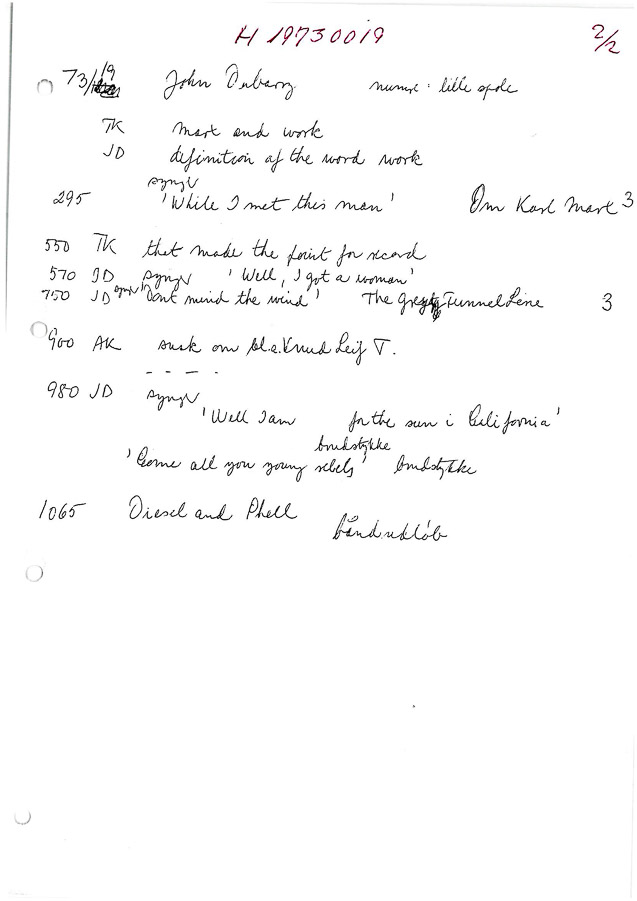 H 19730019 2/2
73/19 John Dubarry lille spole
TK Marx and work
JD definition of the word work
synger
295 'While I met this man' Om Karl Marx 3
550 TK that made the point for record
570 JD synger 'Well, I got a woman'
750 JD synger 'Dont mind the wind' The Tunnel Line 3
900 AK snak om bl.a. Knud Leif T.
- - - -
980 JD synger
'Well I am for the sun i California'
brudstykke
'Come all you young rebels' brudstykke
1065 Diesel and Phell
bånd udløb